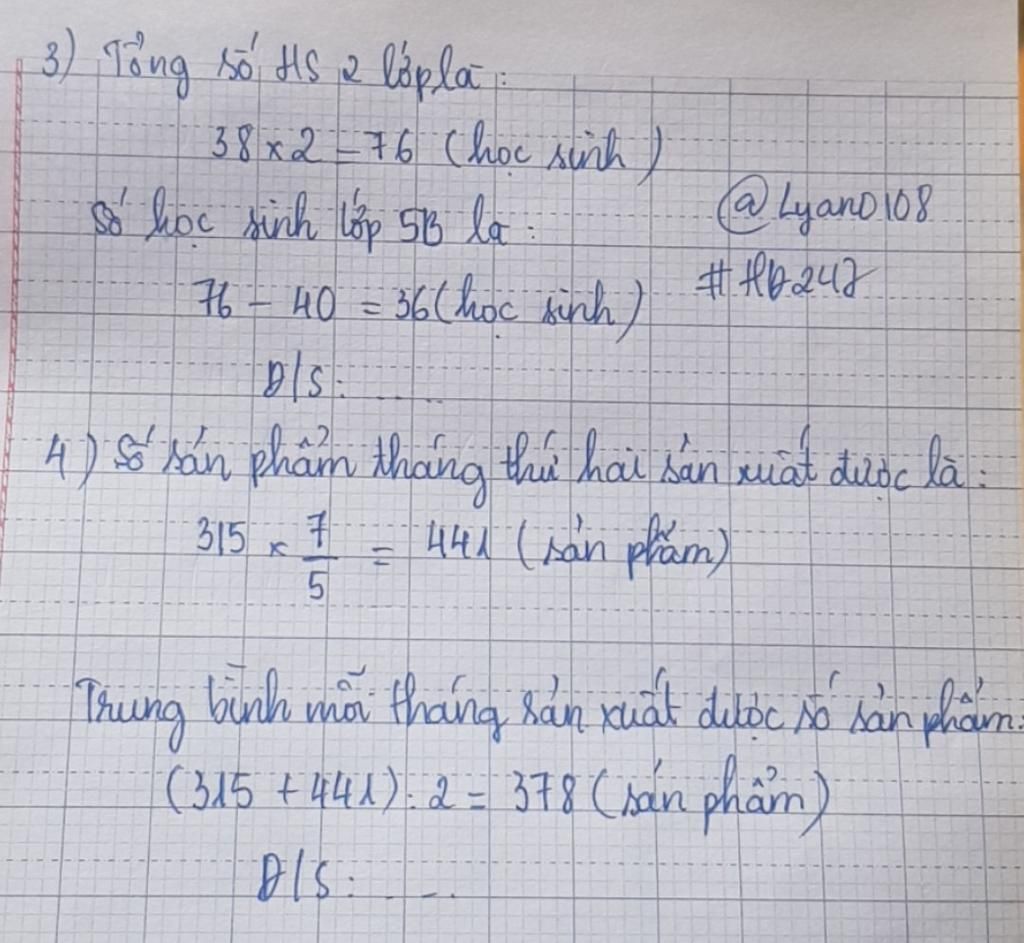 3) Tổng số HS 2 lớp là:
38 × 2 = 76 (học sinh)
Số học sinh lớp 5B là:
@Lyan0108
76 - 40 = 36 (học sinh)
#HĐ247
Đ/S: ......
4) Số sản phẩm tháng thứ hai sản xuất được là:
315 × 7/5 = 441 (sản phẩm)
Trung bình mỗi tháng sản xuất được số sản phẩm:
(315 + 441) : 2 = 378 (sản phẩm)
Đ/S: ......